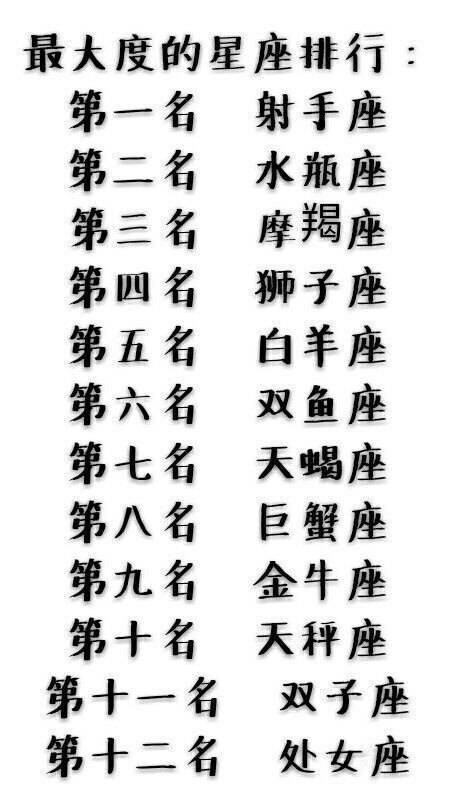 最大度的星座排行：
第一名 射手座
第二名 水瓶座
第三名 摩羯座
第四名 狮子座
第五名 白羊座
第六名 双鱼座
第七名 天蝎座
第八名 巨蟹座
第九名 金牛座
第十名 天秤座
第十一名 双子座
第十二名 处女座